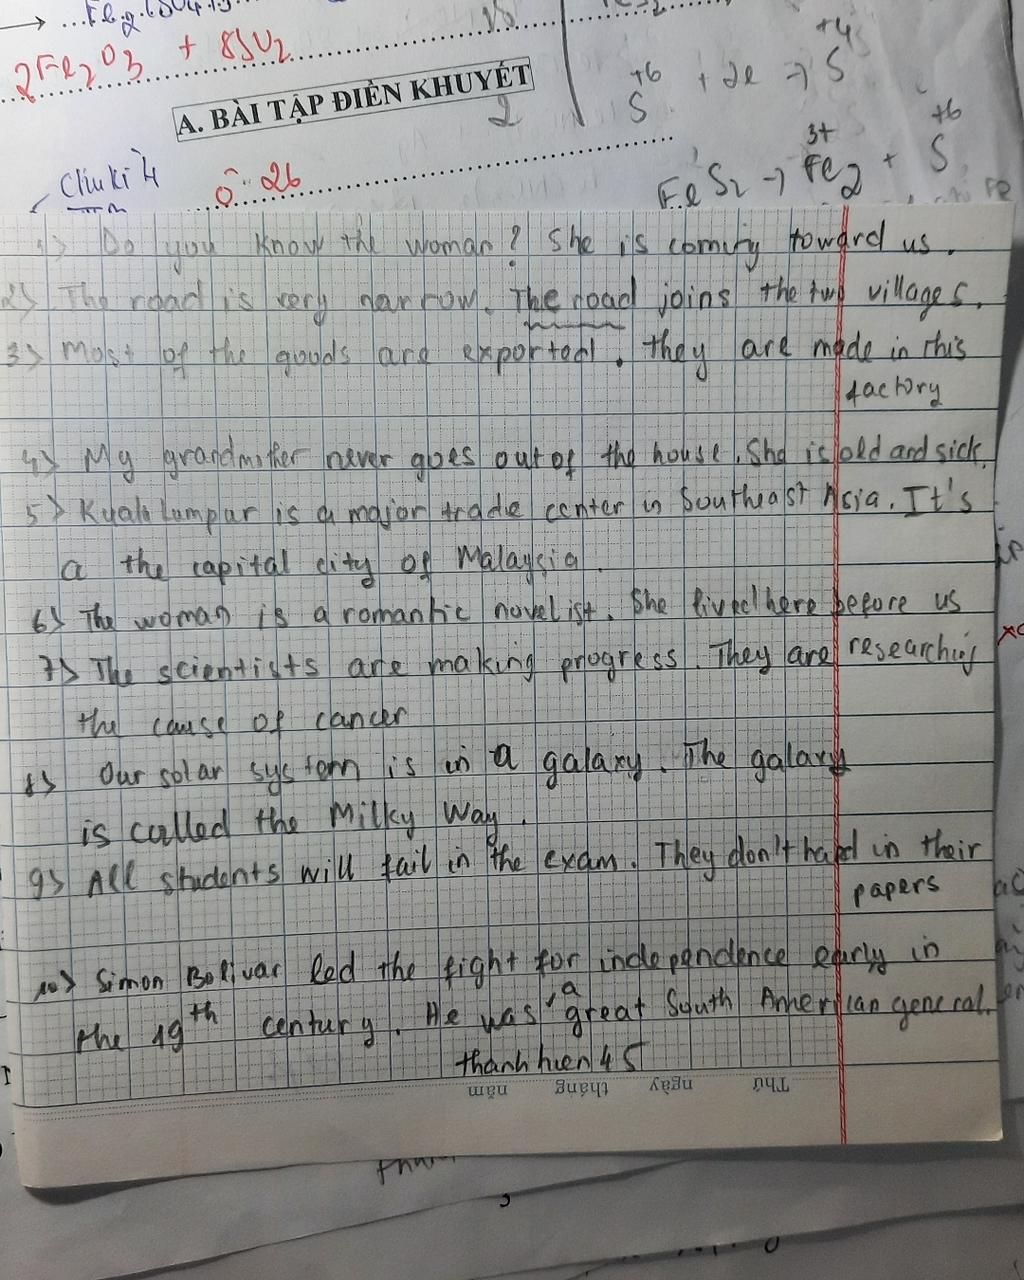 2Fe2O3 + 8SO2
A. BÀI TẬP ĐIỀN KHUYẾT
2
+6 S + 2e → +4 S
Chu kì 4
Ô 26
FeS2 → 3+ Fe2 + +6 S
1> Do you know the woman? She is coming toward us.
2> The road is very narrow. The road joins the two villages.
3> Most of the goods are exported. they are made in this
factory
4> My grandmother never goes out of the house. She is old and sick.
5> Kuala Lumpur is a major trade center in Southeast Asia. It's
a the capital city of Malaysia.
6> The woman is a romantic novelist. She lived here before us
7> The scientists are making progress. They are researching
the cause of cancer
8> Our solar system is in a galaxy. The galaxy
is called the Milky Way.
9> All students will fail in the exam. They don't hand in their
papers
10> Simon Bolivar led the fight for independence early in
the 19th century. He was a great South American general.
thanhhien45
Thứ ngày tháng năm